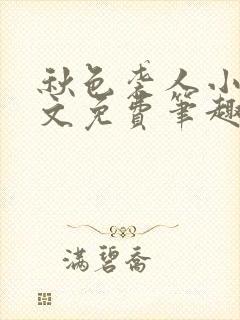 秋色老人小
文免費筆趣
滿碧喬